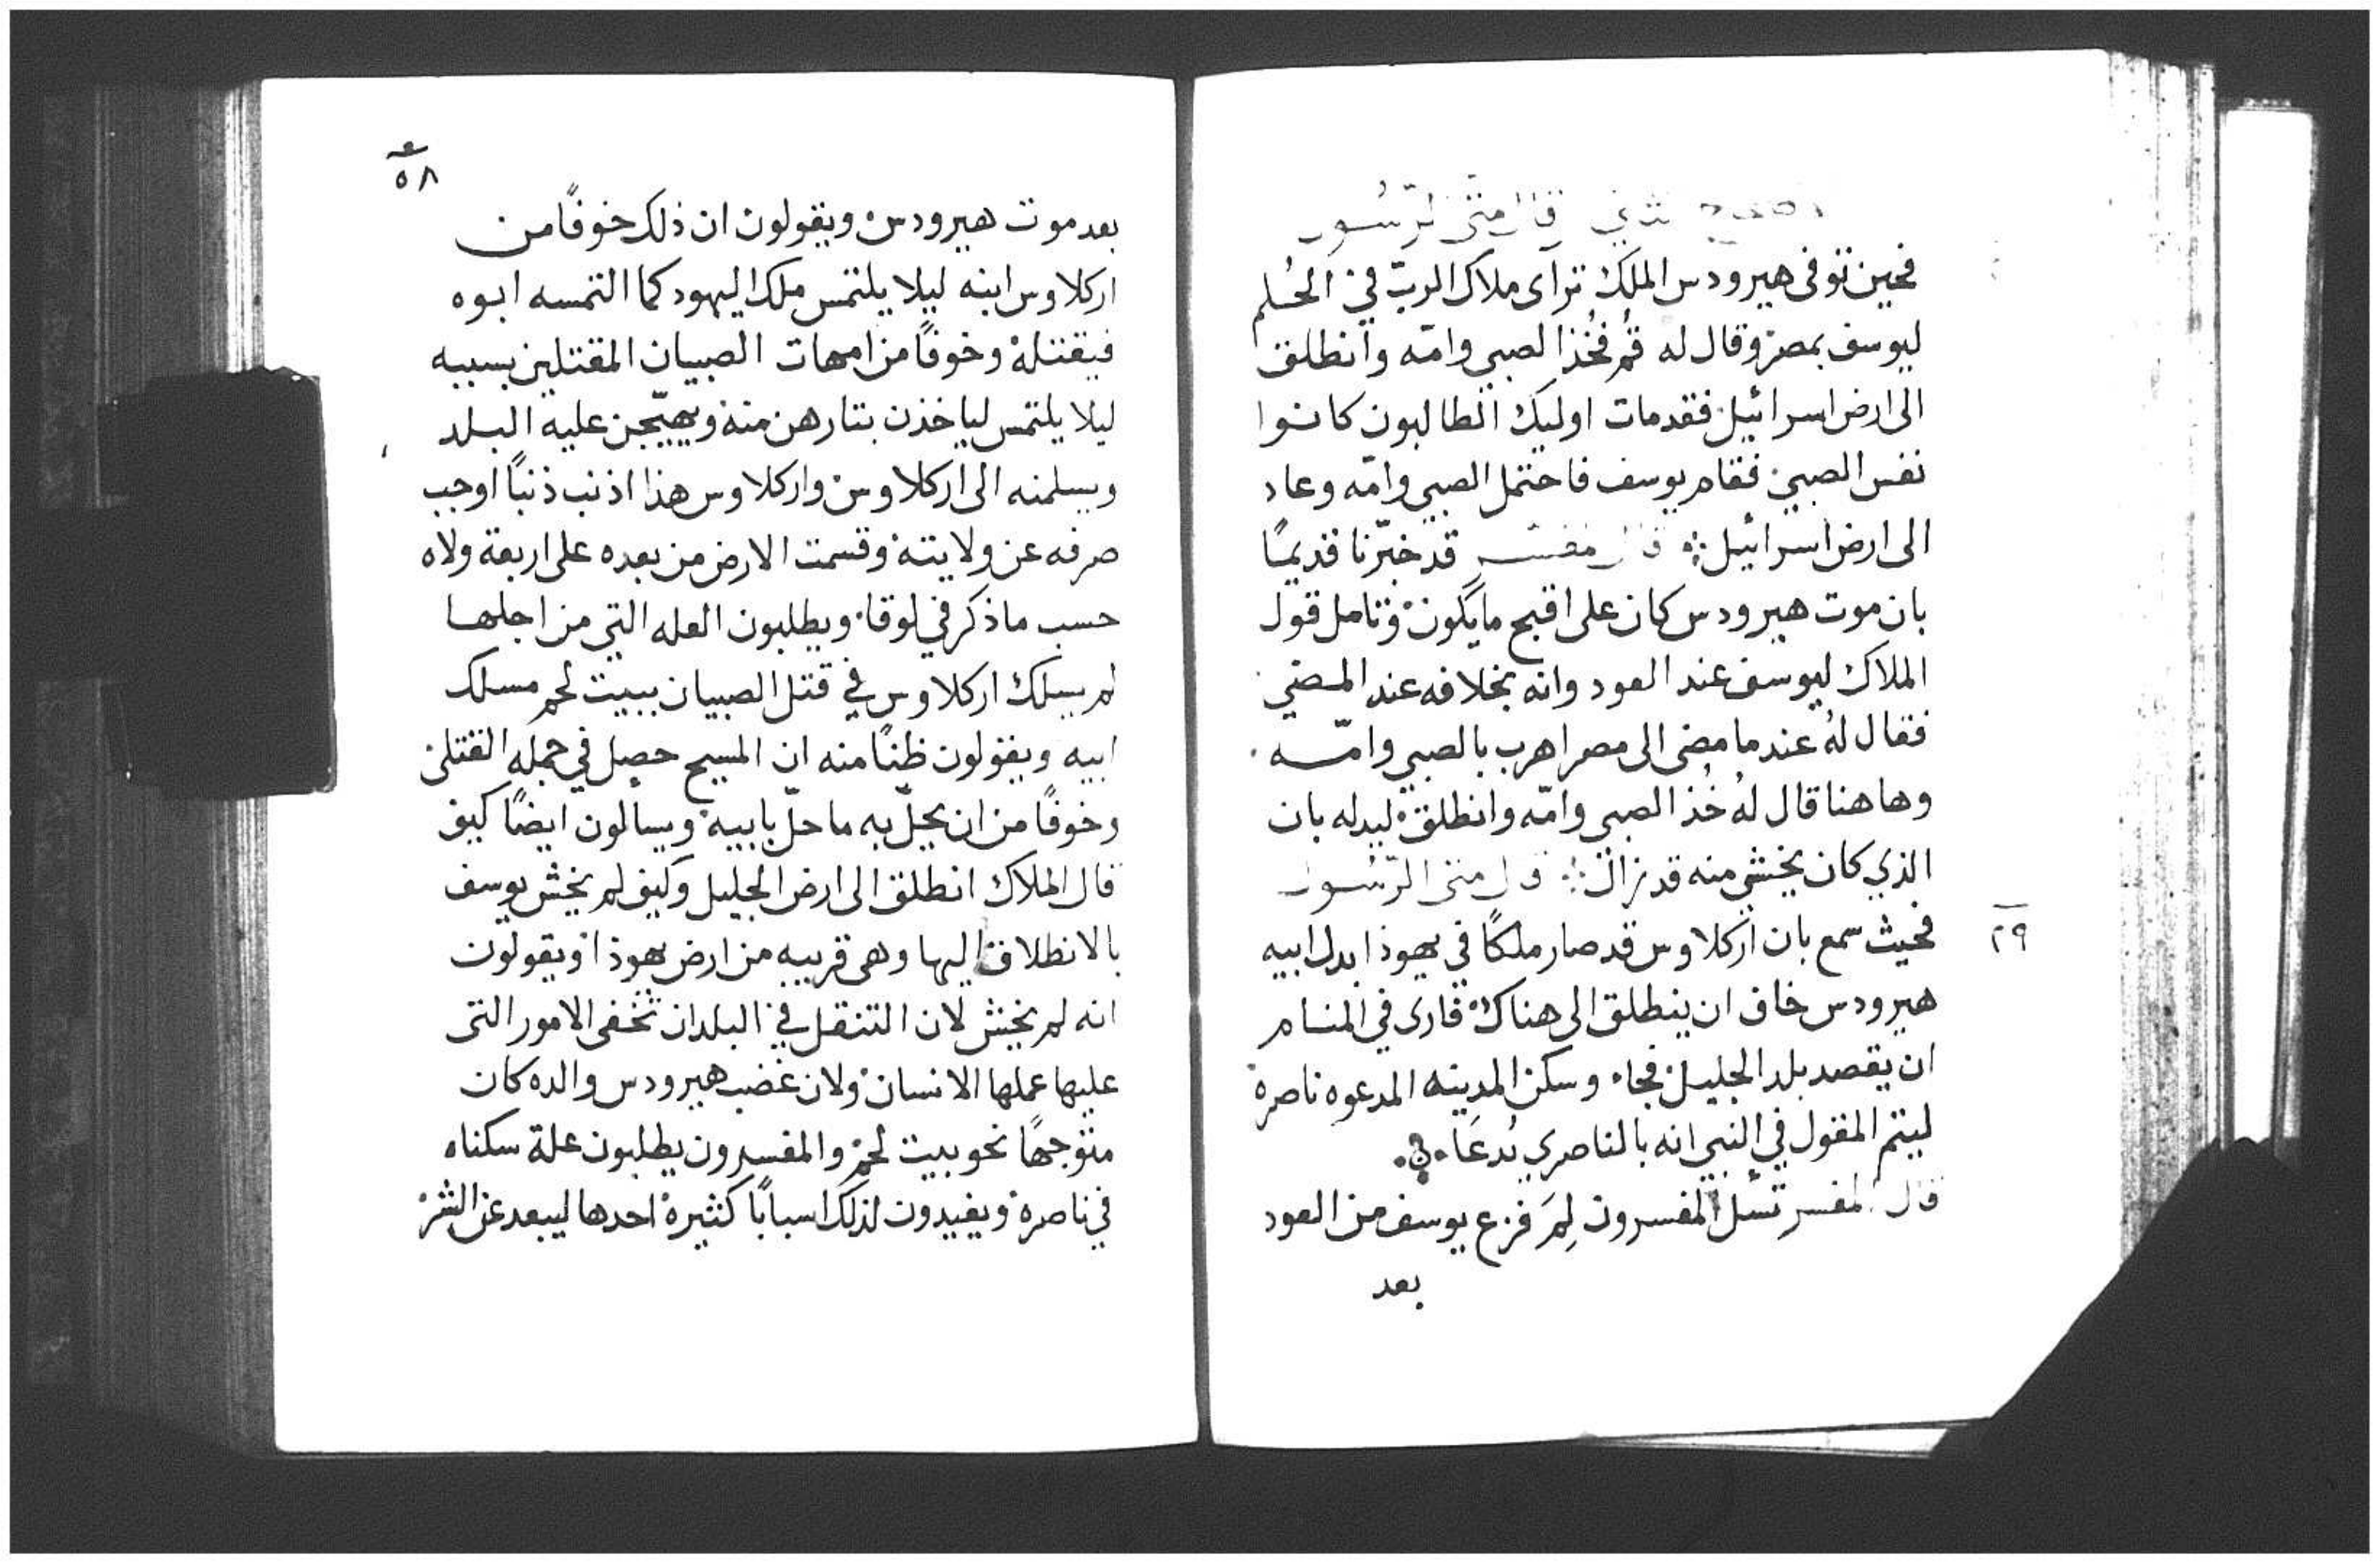 قال متى الرسول
فحين توفى هيرودس الملك ترآى ملاك الربّ في الحُلم
ليوسف بمصر وقال له قُم فخُذ الصبي وامّه وانطلق
الى ارض اسرائيل فقد مات اوليك الطالبون كانوا
نفس الصبي فقام يوسف فاحتمل الصبي وامّه وعاد
الى ارض اسرائيل قال مفسر قد خبّرنا قديمًا
بان موت هيرودس كان على اقبح ما يكون وتامل قول
الملاك ليوسف عند العود وانه بخلافه عند المضي
فقال لهُ عندما مضى الى مصر اهرب بالصبي وامّه
وهاهنا قال لهُ خُذ الصبي وامّه وانطلق ليدله بان
الذي كان يخشي منه قد زال قال متى الرّسُول
٢٩
فحيث سمع بان اركلاوس قد صار ملكًا في يهوذا بدل ابيه
هيرودس خاف ان ينطلق الى هناك فارى في المنام
ان يقصد بلد الجليل فجاء وسكن المدينه المدعوه ناصرة
ليتم المقول في النبي انه بالناصري يُدعَا
قال المفسر تسل المفسرون لِمَ فزع يوسف من العود
بعد
٥٨
بعد موت هيرودس ويقولون ان ذلك خوفًا من
اركلاوس ابنه ليلا يلتمس ملك اليهود كما التمسه ابوه
فيقتله وخوفًا من امهات الصبيان المقتلين بسببه
ليلا يلتمس لياخذن بتارهن منه ويهيّجن عليه البلد
ويسلمنه الى اركلاوس واركلاوس هذا اذنب ذنبًا اوجب
صرفه عن ولايته وقسمت الارض من بعده على اربعة ولاه
حسب ما ذكر في لوقا ويطلبون العله التي من اجلها
لم يسلك اركلاوس في قتل الصبيان ببيت لحم مسلك
ابيه ويقولون ظنًا منه ان المسيح حصل في جمله القتلى
وخوفًا من ان يحلّ به ما حلّ بابيه ويسالون ايضًا كيف
قال الملاك انطلق الى ارض الجليل وكيف لم يخش يوسف
بالانطلاق اليها وهى قريبه من ارض يهوذا ويقولون
انه لم يخش لان التنقل في البلدان تخفى الامور التى
عليها عملها الانسان ولان غضب هيرودس والده كان
متوجهًا نحو بيت لحم والمفسرون يطلبون علة سكناه
في ناصره ويفيدون لذلك اسبابًا كثيرة احدها ليبعد عن الشر